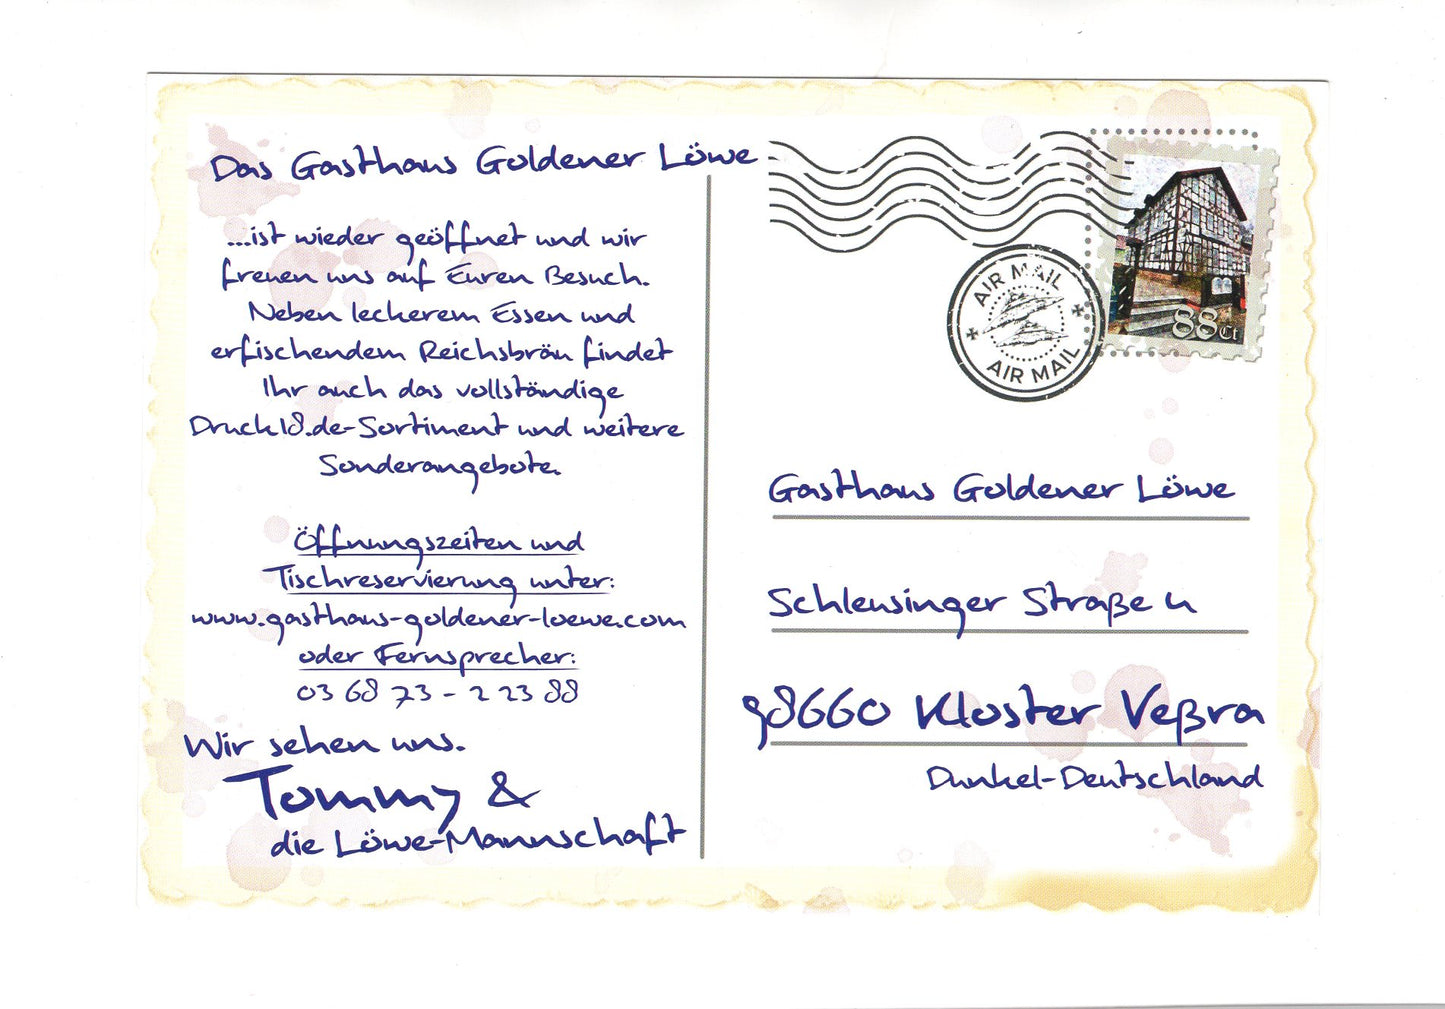 Das Gasthaus Goldener Löwe
...ist wieder geöffnet und wir
freuen uns auf Euren Besuch.
Neben leckerem Essen und
erfischendem Reichsbräu findet
Ihr auch das vollständige
Druck18.de-Sortiment und weitere
Sonderangebote.
Öffnungszeiten und
Tischreservierung unter:
www.gasthaus-goldener-loewe.com
oder Fernsprecher:
03 68 73 - 2 23 88
Wir sehen uns.
Tommy &
die Löwe-Mannschaft
AIR MAIL
AIR MAIL
88 Ct
Gasthaus Goldener Löwe
Schleusinger Straße 4
98660 Kloster Veßra
Dunkel-Deutschland